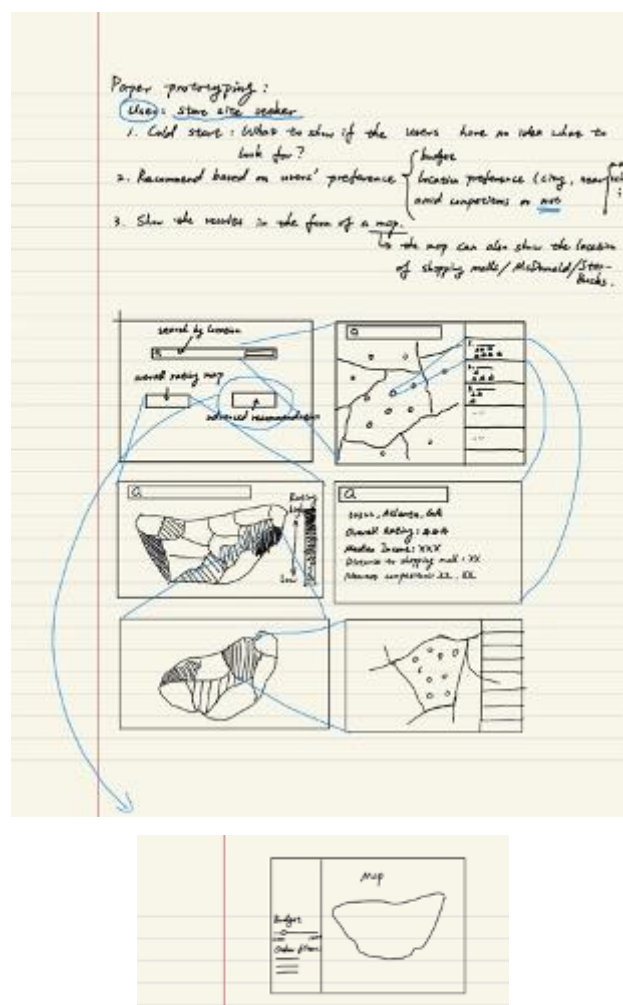 Paper prototyping:
User: store site seeker
1. Cold start: What to show if the users have no idea what to
look for?
2. Recommend based on users' preference
budget
location preference (city, near
avoid competitors or not
3. Show the results in the form of a map.
the map can also show the location
of shopping malls/McDonald/Star-
Bucks.
search by location
overall rating map
advanced recommendation
Rating
Low
Atlanta, GA
Overall Rating:
Median Income: XXX
Distance to shopping mall: XX
Nearest competitors: XX, XX
Map
Budget
Other filters